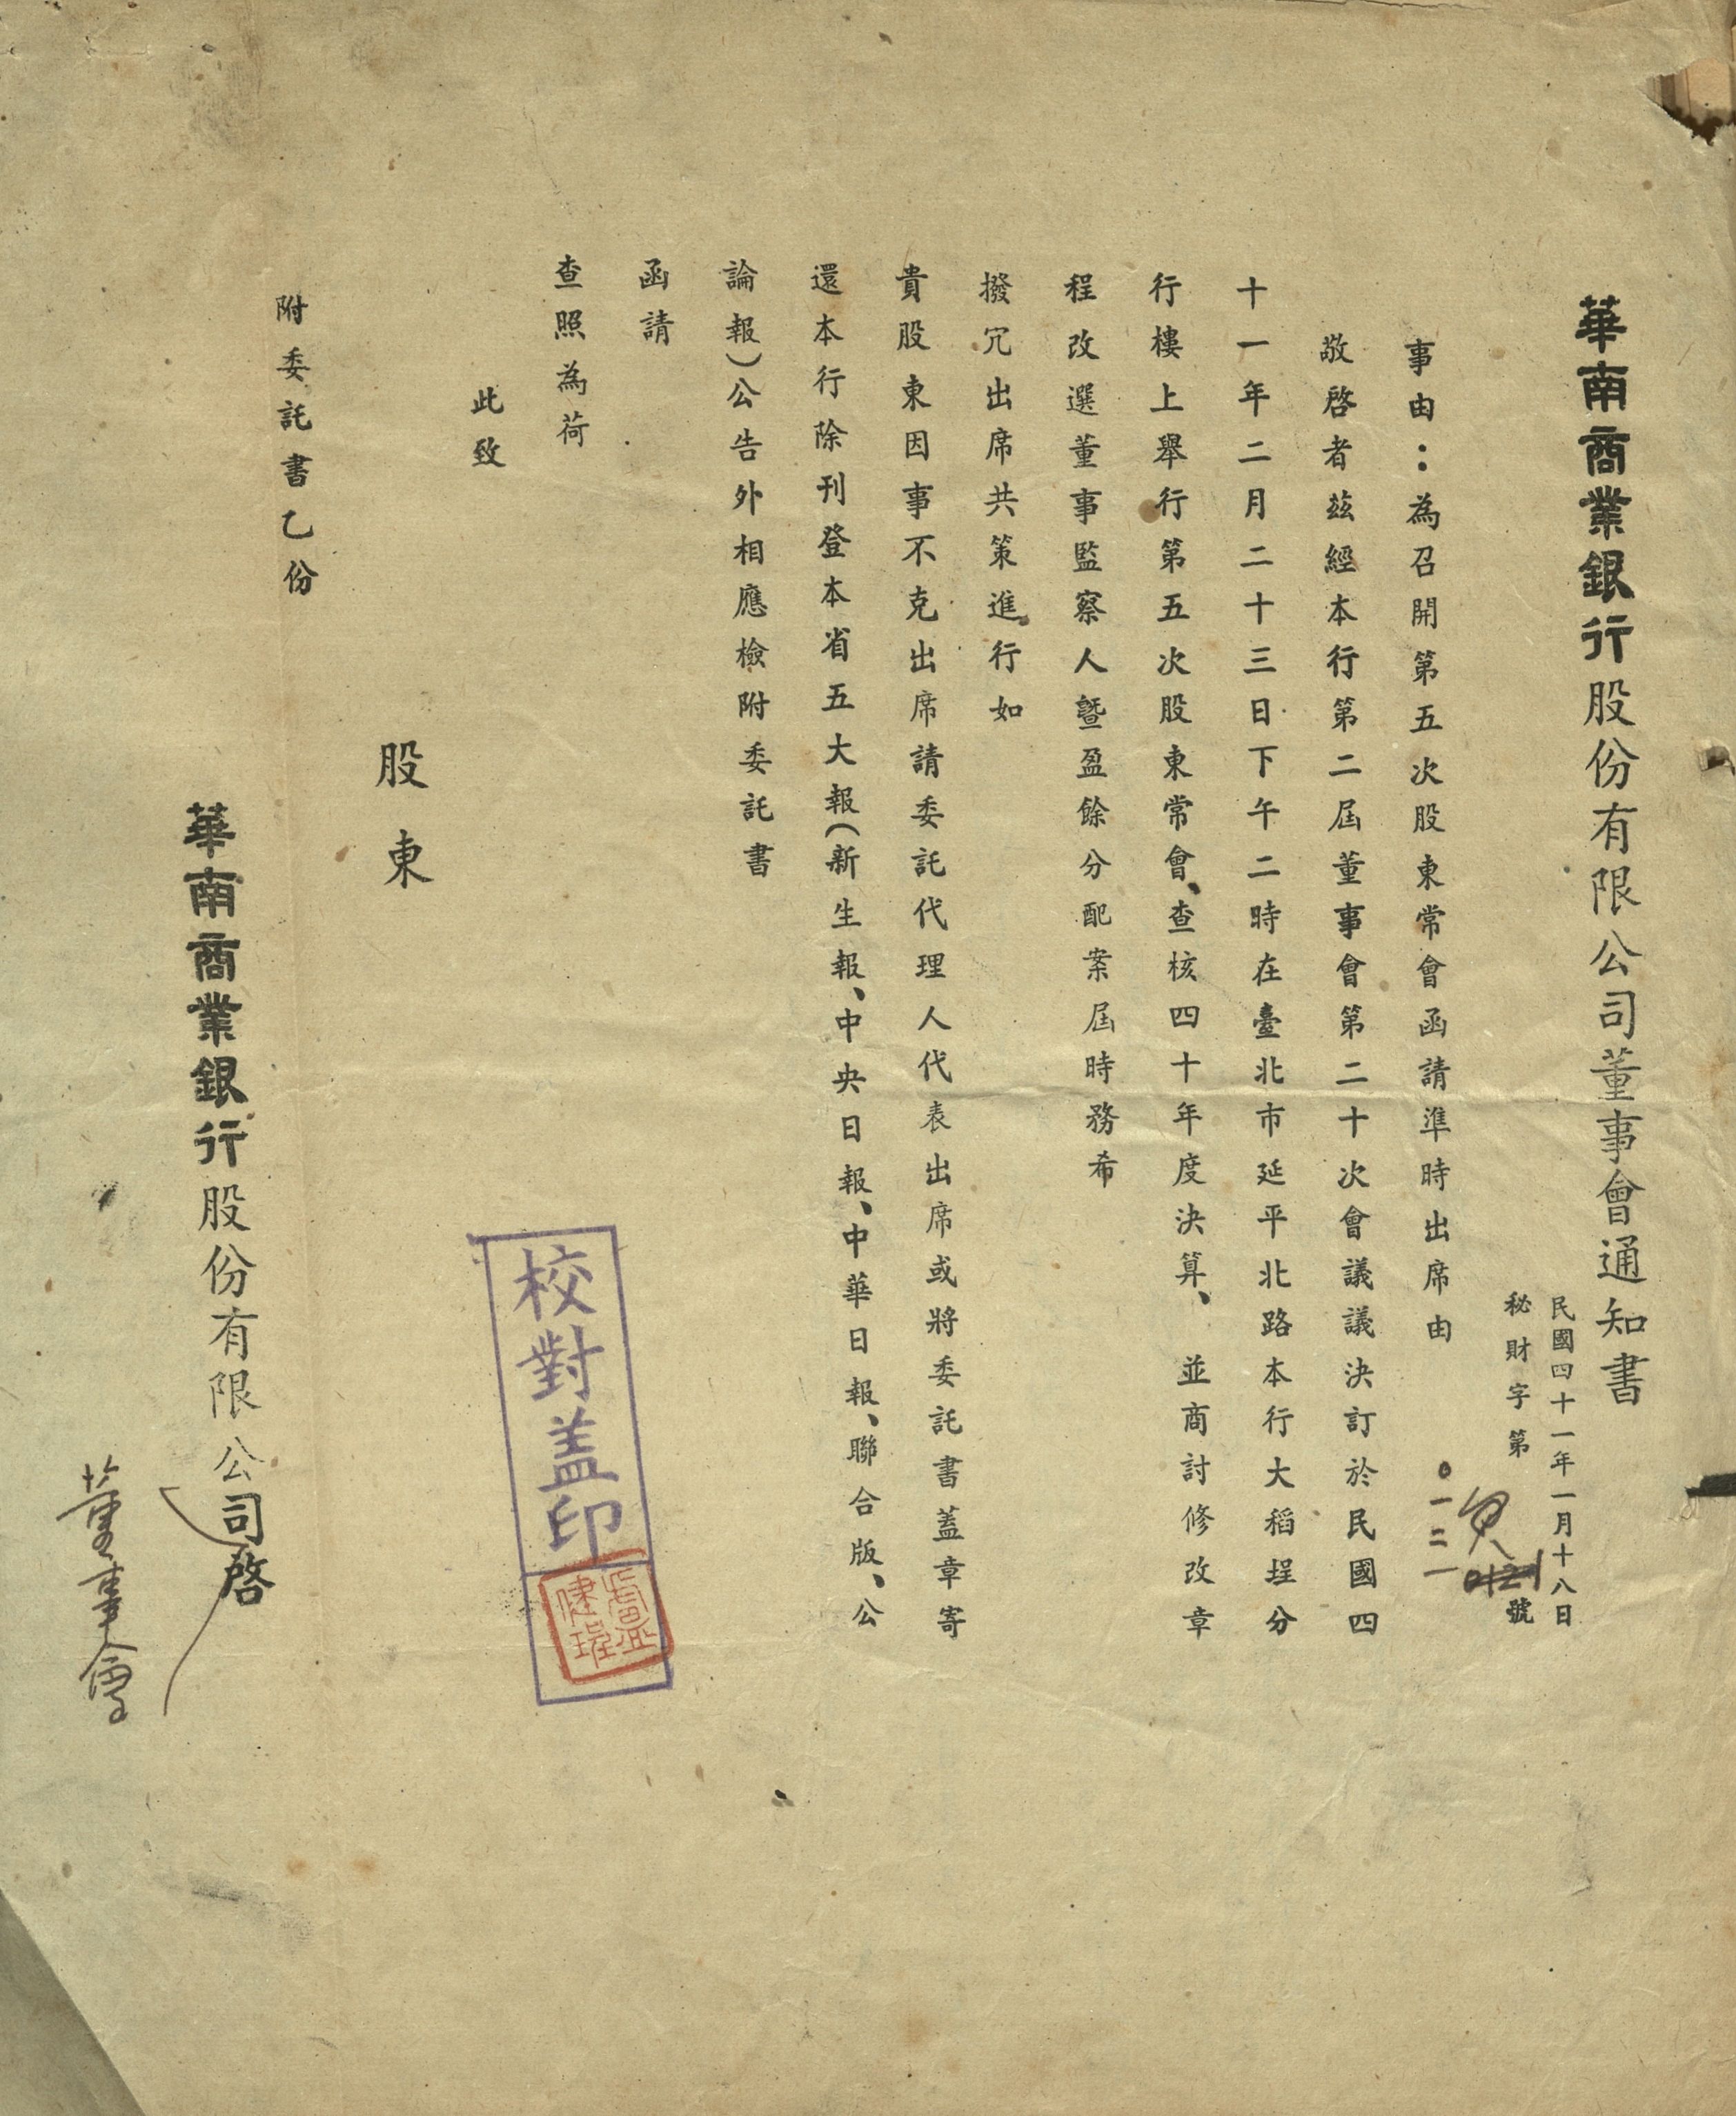 華南商業銀行股份有限公司董事會通知書
民國四十一年一月十八日
秘財字第0121號
〇一二一
事由：為召開第五次股東常會函請準時出席由
敬啓者茲經本行第二屆董事會第二十次會議議決訂於民國四
十一年二月二十三日下午二時在臺北市延平北路本行大稻埕分
行樓上舉行第五次股東常會、查核四十年度決算、並商討修改章
程改選董事監察人暨盈餘分配案屆時務希
撥冗出席共策進行如
貴股東因事不克出席請委託代理人代表出席或將委託書蓋章寄
還本行除刊登本省五大報（新生報、中央日報、中華日報、聯合版、公
論報）公告外相應檢附委託書
函請
查照為荷
此致
股東
附委託書乙份
華南商業銀行股份有限公司啓
董事會
校對蓋印